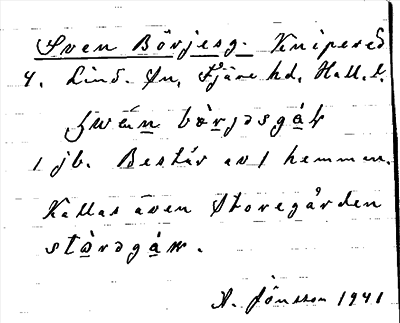 Sven Börjesg. Knipered
4. Lind. Sn, Fjäre hd, Hall. l.
swän bòrjəsgàɽ
1 jb. Består av 1 hemman.
Kallas även Storegården
stòrəgàɽn.
A. Jönsson 1941